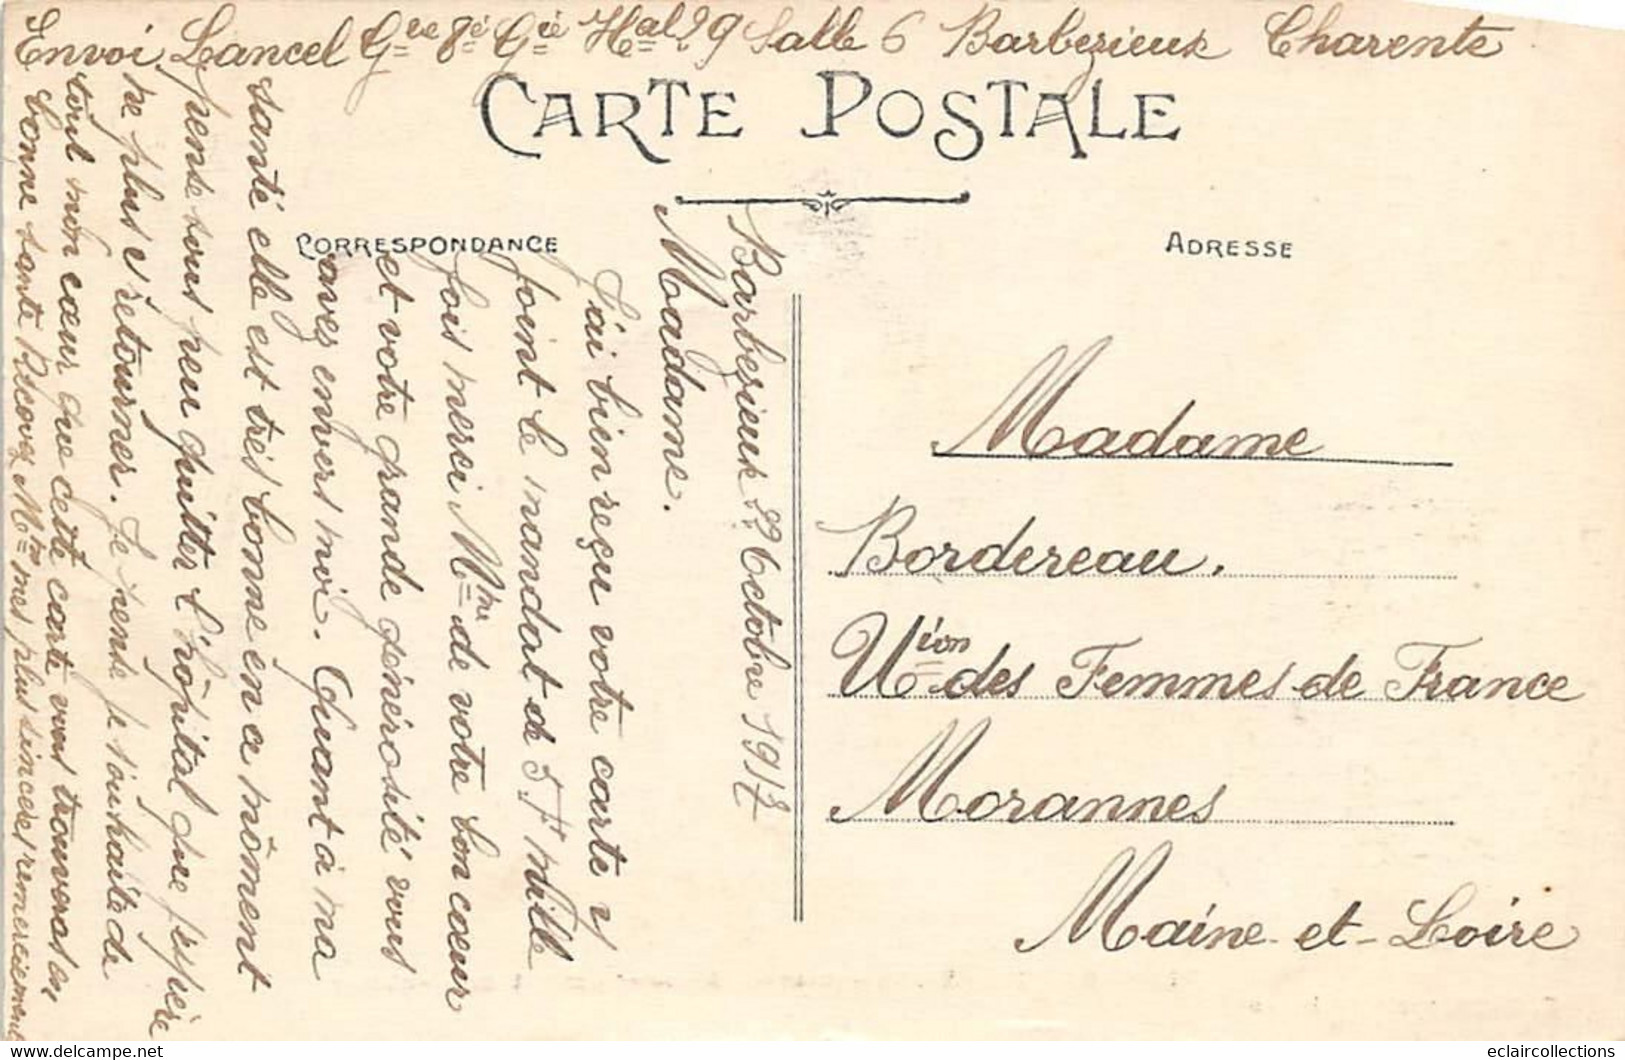 Envoi Lancel Gre 8é Cie Hal 29 Salle 6 Barbezieux Charente
CARTE POSTALE
CORRESPONDANCE
ADRESSE
Barbezieux 22 Octobre 1917
Madame.
J'ai bien reçu votre carte y
joint le mandat de 5F mille
fois merci Mme de votre bon cœur
et votre grande générosité vous
avez envers moi. Quant à ma
santé elle est très bonne en ce môment
pense vous peu quitter l'hôpital que j'espère
ne plus y rétourner. Je pense je souhaite de
tout mon cœur que cette carte vous trouveras en
bonne sante Récevez Mme mes plus sincères remerciement
Madame
Bordereau.
Uion des Femmes de France
Morannes
Maine-et-Loire
eclaircollections